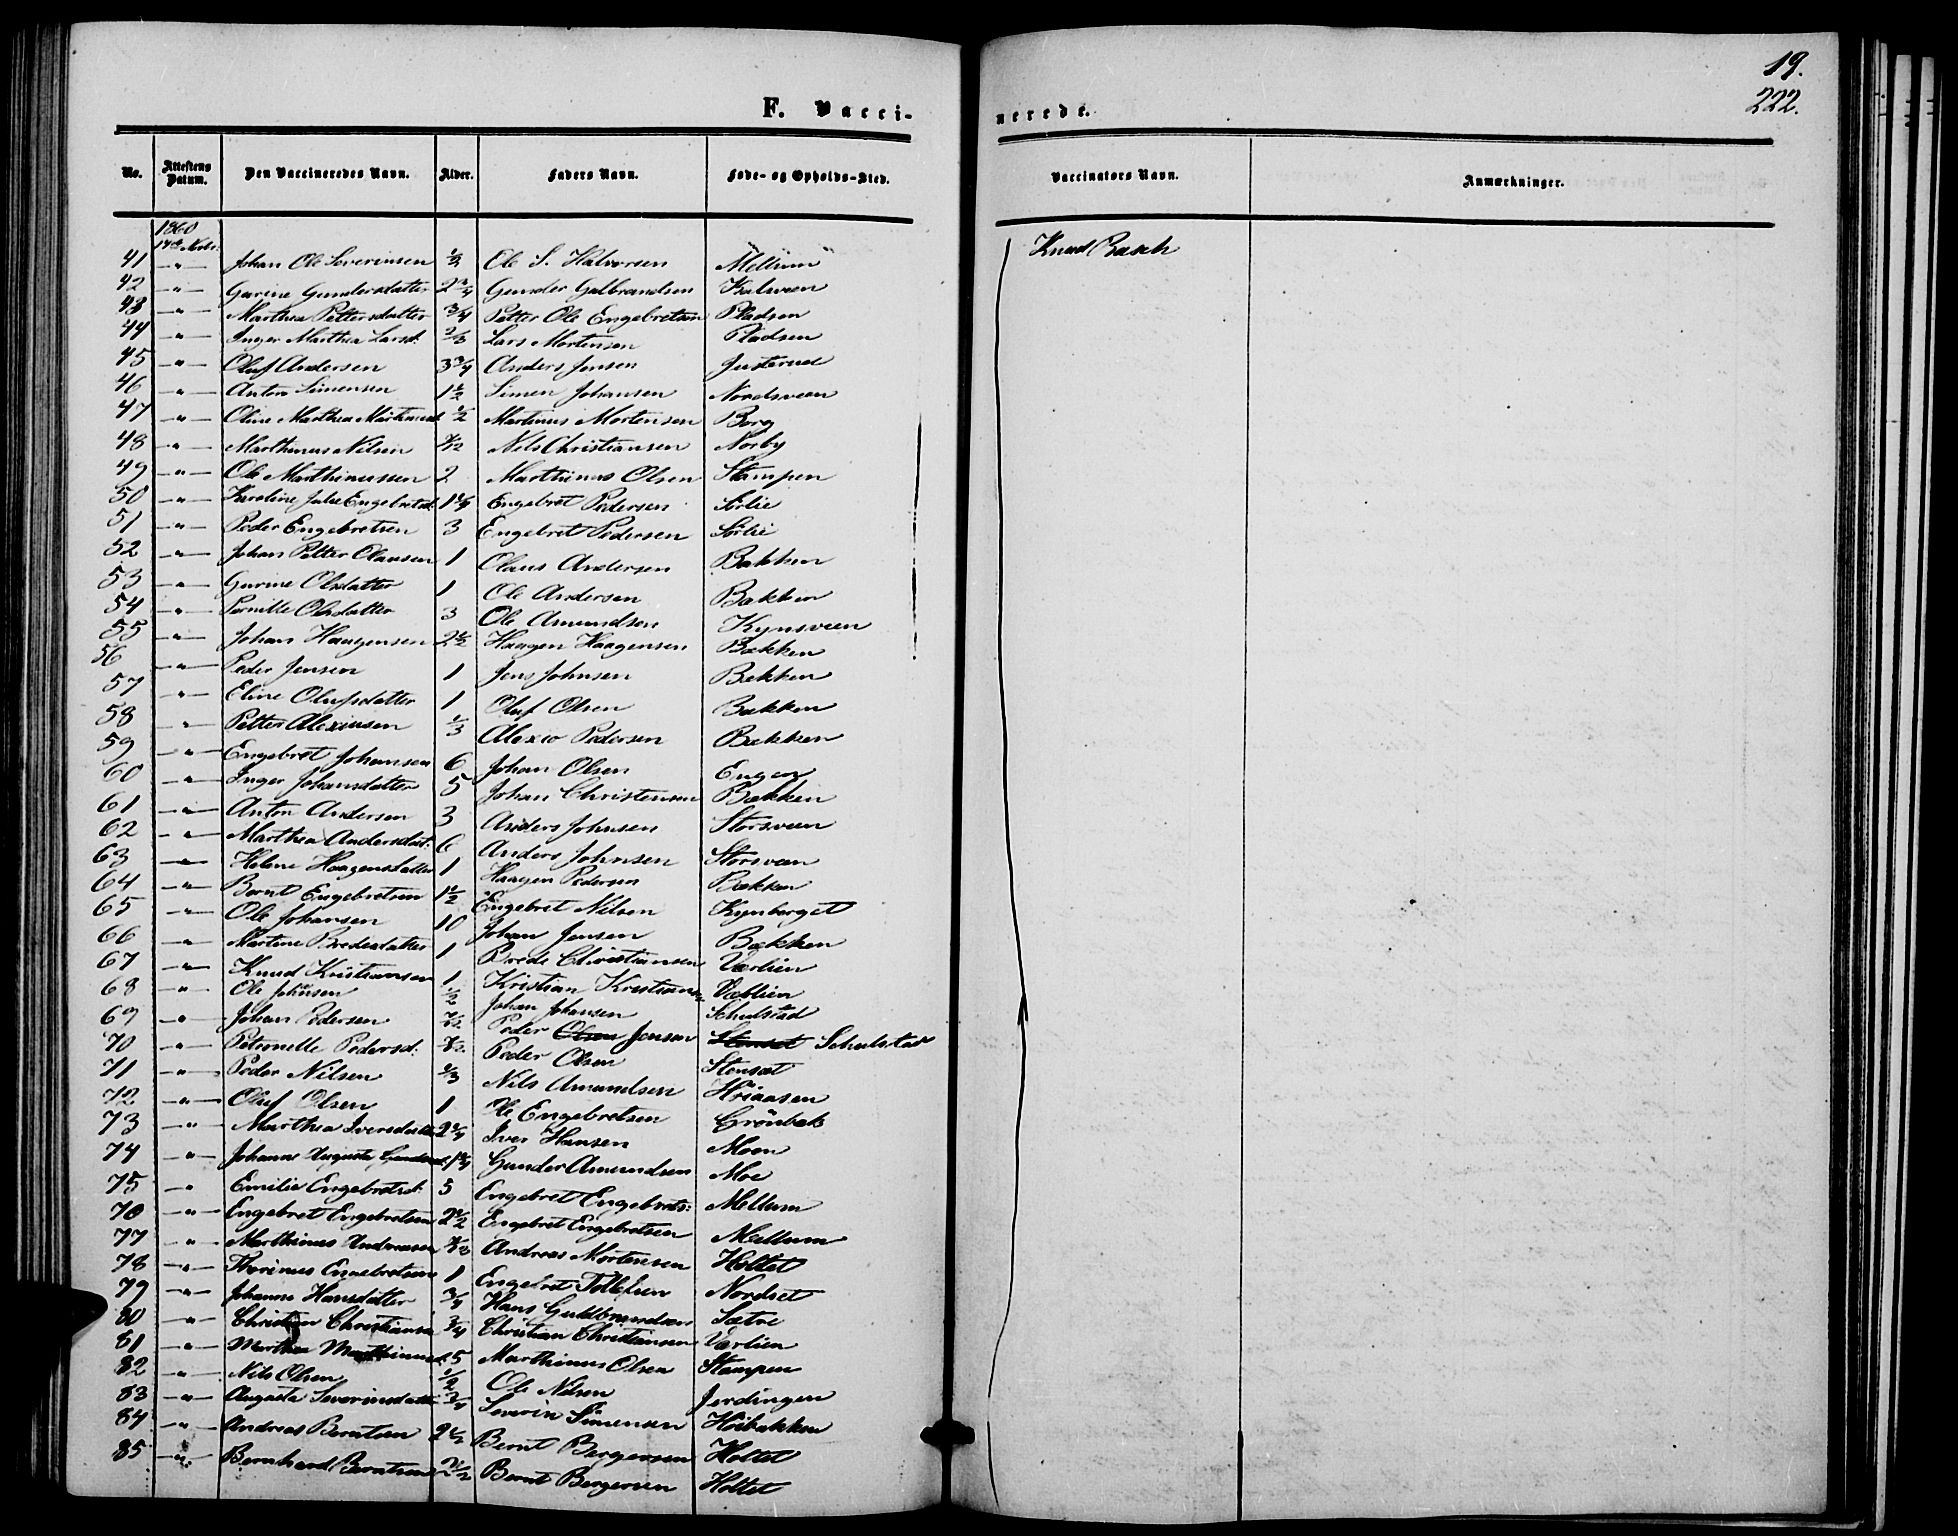 19.
222.
F. Vacci-
nerede.
No. Attestens Datum. Den Vaccineredes Navn. Alder. Faders Navn. Føde- og Opholds-Sted.
Vaccinators Navn. Anmærkninger.
1860
41 -"- Johan Ole Severinsen Ole S. Halvorsen Mellum Knud Basch
42 -"- Gurine Gundersdatter 2 3/4 Gunder Gulbrandsen
43 -"- Marthea Pettersdatter 3/4 Petter Ole Engebretsen Pladsen
44 -"- Inger Marthea Larsd: 2/3 Lars Mortensen Pladsen
45 -"- Oluf Andersen 3 3/4 Anders Jensen Justerud
46 -"- Anton Simensen 1 1/2 Simen Johansen Nordsveen
47 -"- Oline Marthea 1/2 Martinus Mortensen Borg
48 -"- Marthinus Nilsen Nils Christiansen Norby
49 -"- Ole Marthinussen 2 Marthinus Olsen Stampen
50 -"- Karoline Julie Engebretsd: Engebret Pedersen Sørlie
51 -"- Peder Engebretsen 3 Engebret Pedersen Sørlie
52 -"- Johan Petter Olausen 1 Olaus Andersen Bakken
53 -"- Gurine Olsdatter 1 Ole Andersen Bakken
54 -"- Pernille Olsdatter 3 Ole Amundsen Kynsveen
55 -"- Johan Haagensen 2 1/2 Haagen Haagensen Bækken
56 -"- Peder Jensen 1 Jens Johnsen Bækken
57 -"- Eline Olufsdatter 1 Oluf Olsen Bækken
58 -"- Petter Alexiusen 1/3 Alexio Pedersen Bækken
59 -"- Engebret Johansen 6 Johan Olsen Engen
60 -"- Inger Johansdatter 5 Johan Christensen Bækken
61 -"- Anton Andersen 3 Anders Johnsen Storsveen
62 -"- Marthea Andersdat: 6 Anders Johnsen Storsveen
63 -"- Helene Haagensdatter 1 Haagen Pedersen Bækken
64 -"- Bernt Engebretsen 1 1/2 Engebret Nilsen Kynberget
65 -"- Ole Johansen 10 Johan Jensen Bækken
66 -"- Martine Bredesdatter 1 Brede Christiansen Værlien
67 -"- Knud Kristiansen 1 Kristian Kristiansen
68 -"- Ole Johansen 1/2 Johan Johansen Schulstad
69 -"- Johan Pedersen Peder Olsen Jensen Stenset Schulstad
70 -"- Petronelle Pedersd: Peder Olsen Stenset
71 -"- Peder Nilsen Nils Amundsen
72 -"- Oluf Olsen 1 Ole Engebretsen Grönbek
73 -"- Marthea Iversdatter Iver Hansen Moen
74 -"- Johanne Augusta Gundersd. Gunder Amundsen Moe
75 -"- Emilie Engebretsd: 5 Engebret Engebrets: Mellum
76 -"- Engebret Engebretsen 2 1/2 Engebret Engebretsen Mellum
77 -"- Marthinus Andreasen Andreas Mortensen Holtet
78 -"- Thorinus Engebretsen 1 Engebret Tollefsen Nordset
79 -"- Johanne Hansdatter 3/4 Hans Guldbrandsen Sætre
80 -"- Christian Christiansen 3/4 Christian Christiansen Værlien
81 -"- Marthea 5 Marthinus Olsen Stampen
82 -"- Nils Olsen 1/2 Ole Nilsen Jerdingen
83 -"- Augusta Severinsdatter 3/4 Severin Simensen Høibakken
84 -"- Andreas Berntsen 2 1/2 Bernt Bergersen Holtet
85 -"- Bernhard Berntsen Bernt Bergersen Holtet